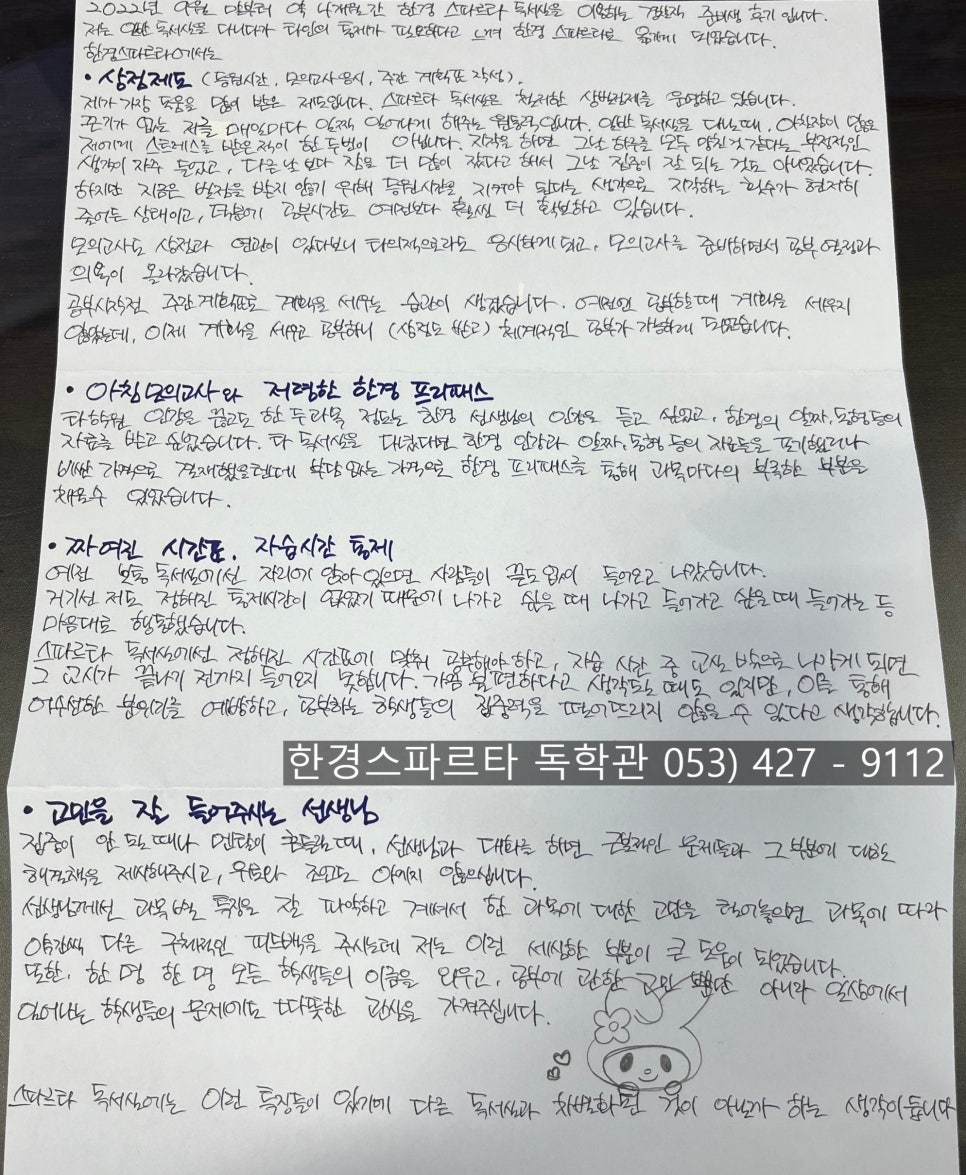 2022년 9월 말부터 약 4개월간 한경 스파르타 독서실을 이용하는 경찰직 준비생 후기 입니다.
저는 일반 독서실을 다니다가 타인의 통제가 필요하다고 느껴 한경 스파르타로 옮기게 되었습니다.
한경스파르타에서는
• 상점제도 (등원시간, 모의고사 응시, 주간 계획표 작성).
제가 가장 도움을 많이 받은 제도입니다. 스파르타 독서실은 철저한 상벌점제를 운영하고 있습니다.
끈기가 없는 저를 매일마다 일찍 일어나게 해주는 원동력입니다. 일반 독서실을 다닐때, 아침잠이 많은
저에게 스트레스를 받은적이 한두번이 아닙니다. 지각을 하면 그날 하루를 모두 망친것 같다는 부정적인
생각이 자주 들었고, 다른 날 보다 잠을 더 많이 잤다고 해서 그날 집중이 잘 되는 것도 아니었습니다.
하지만 지금은 벌점을 받지 않기 위해 등원시간을 지켜야 된다는 생각으로 지각하는 횟수가 현저히
줄어든 상태이고, 덕분에 공부시간도 예전보다 훨씬 더 확보하고 있습니다.
모의고사도 상점과 연관이 있다보니 타의적으로라도 응시하게 되고, 모의고사를 준비하면서 공부 열정과
의욕이 올라갔습니다.
공부시작전 주간계획표로 계획을 세우는 습관이 생겼습니다. 예전엔 공부할때 계획을 세우지
않았는데, 이제 계획을 세우고 공부하니 (상점도 받고) 체계적인 공부가 가능하게 되었습니다.
• 아침모의고사와 저렴한 한경 프리패스
타학원 인강을 끊고도 한두과목 정도는 한경 선생님의 인강을 듣고 싶었고, 한경의 알짜, 동형등의
자료를 받고 싶었습니다. 타 독서실을 다녔다면 한경 인강과 알짜, 동형 등의 자료들을 포기했거나
비싼 가격으로 결제했을텐데 부담 없는 가격으로 한경 프리패스를 통해 과목마다의 부족한 부분을
채울수 있었습니다.
• 짜여진 시간표, 자습시간 통제
예전 보통 독서실에선 자리에 앉아 있으면 사람들이 끝도없이 들어오고 나갔습니다.
거기선 저도 정해진 통제시간이 없었기 때문에 나가고 싶을 때 나가고 들어가고 싶을때 들어가는 등
마음대로 행동했습니다.
스파르타 독서실에선 정해진 시간표에 맞춰 공부해야 하고, 자습 시간 중 교실 밖으로 나가게 되면
그 교시가 끝나기 전까지 들어오지 못합니다. 가끔 불편하다고 생각도 때도 있지만, 이를 통해
어수선한 분위기를 예방하고, 공부하는 학생들의 집중력을 떨어뜨리지 않을 수 있다고 생각합니다.
한경스파르타 독학관 053) 427 - 9112
• 고민을 잘 들어주시는 선생님
집중이 안 될 때나 멘탈이 흔들릴때, 선생님과 대화를 하면 근본적인 문제들과 그 부분에 대한
해결책을 제시해주시고, 위로와 조언도 아끼지 않으십니다.
선생님께선 과목별 특징을 잘 파악하고 계셔서 한 과목에 대한 고민을 털어놓으면 과목에 따라
약간씩 다른 구체적인 피드백을 주시는데 저는 이런 세심한 부분이 큰 도움이 되었습니다.
또한, 한 명 한 명 모든 학생들의 이름을 외우고, 공부에 관한 고민 뿐만 아니라 일상에서
일어나는 학생들의 문제에도 따뜻한 관심을 가져주십니다.
스파르타 독서실에는 이런 특징들이 있기에 다른 독서실과 차별화된 것이 아닌가 하는 생각이듭니다